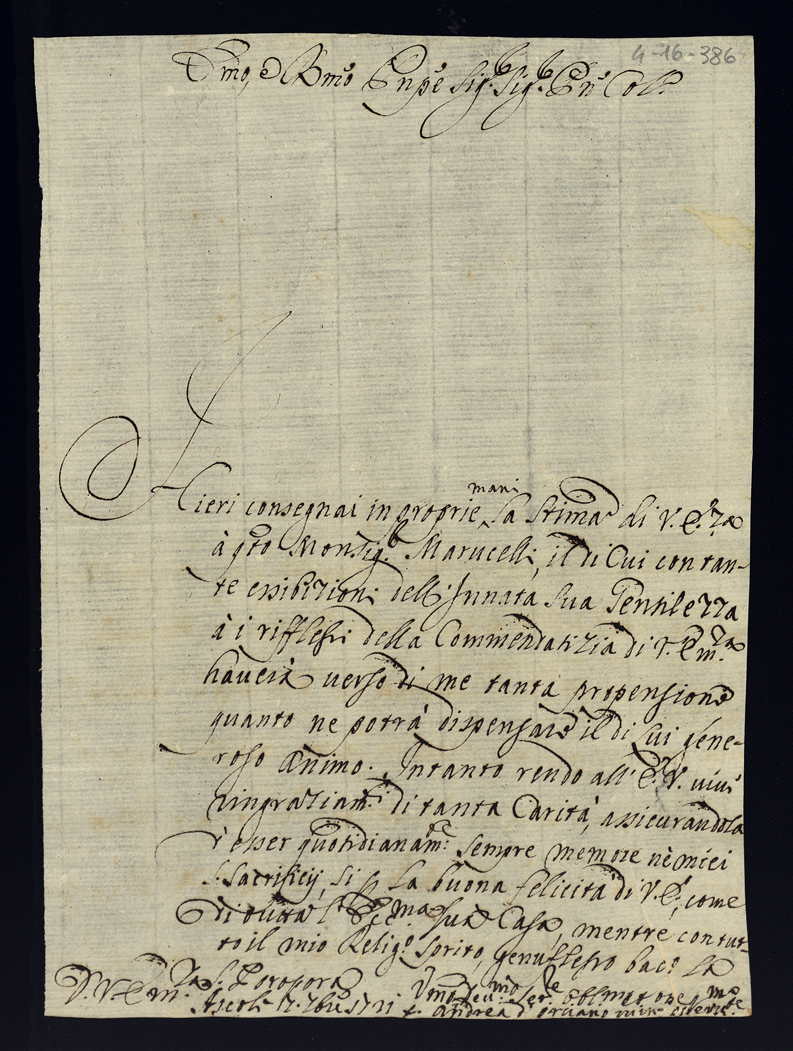 4-16-386
Emo, e Rmo Pnpe Sig.r Sig.r Pne Col.
Hieri consegnai in proprie mani la stima di V. E.za
à qto Monsig.r Marucelli, il di Cui con tan-
te essibizioni dell'Innata Sua Gentilezza
à i riflessi della Commendatizia di V. Em.za
haverà verso di me tanta propensione
quanto ne potrà dispensare il di lui gene-
roso Animo. Intanto rendo all'E. V. vivi
ringraziam.ti di tanta Carità, assicurandola
d'esser quotidianam.te sempre memore nè miei
S. Sacrificij, si p la buona felicità di V. E., come
di tutta l' sua Casa, mentre con tut-
to il mio Relig.o Spirito, genuflesso bacio la
S. Porpora
D. V. Em.za
Ascoli 17. 7bre 1721
Andrea d'